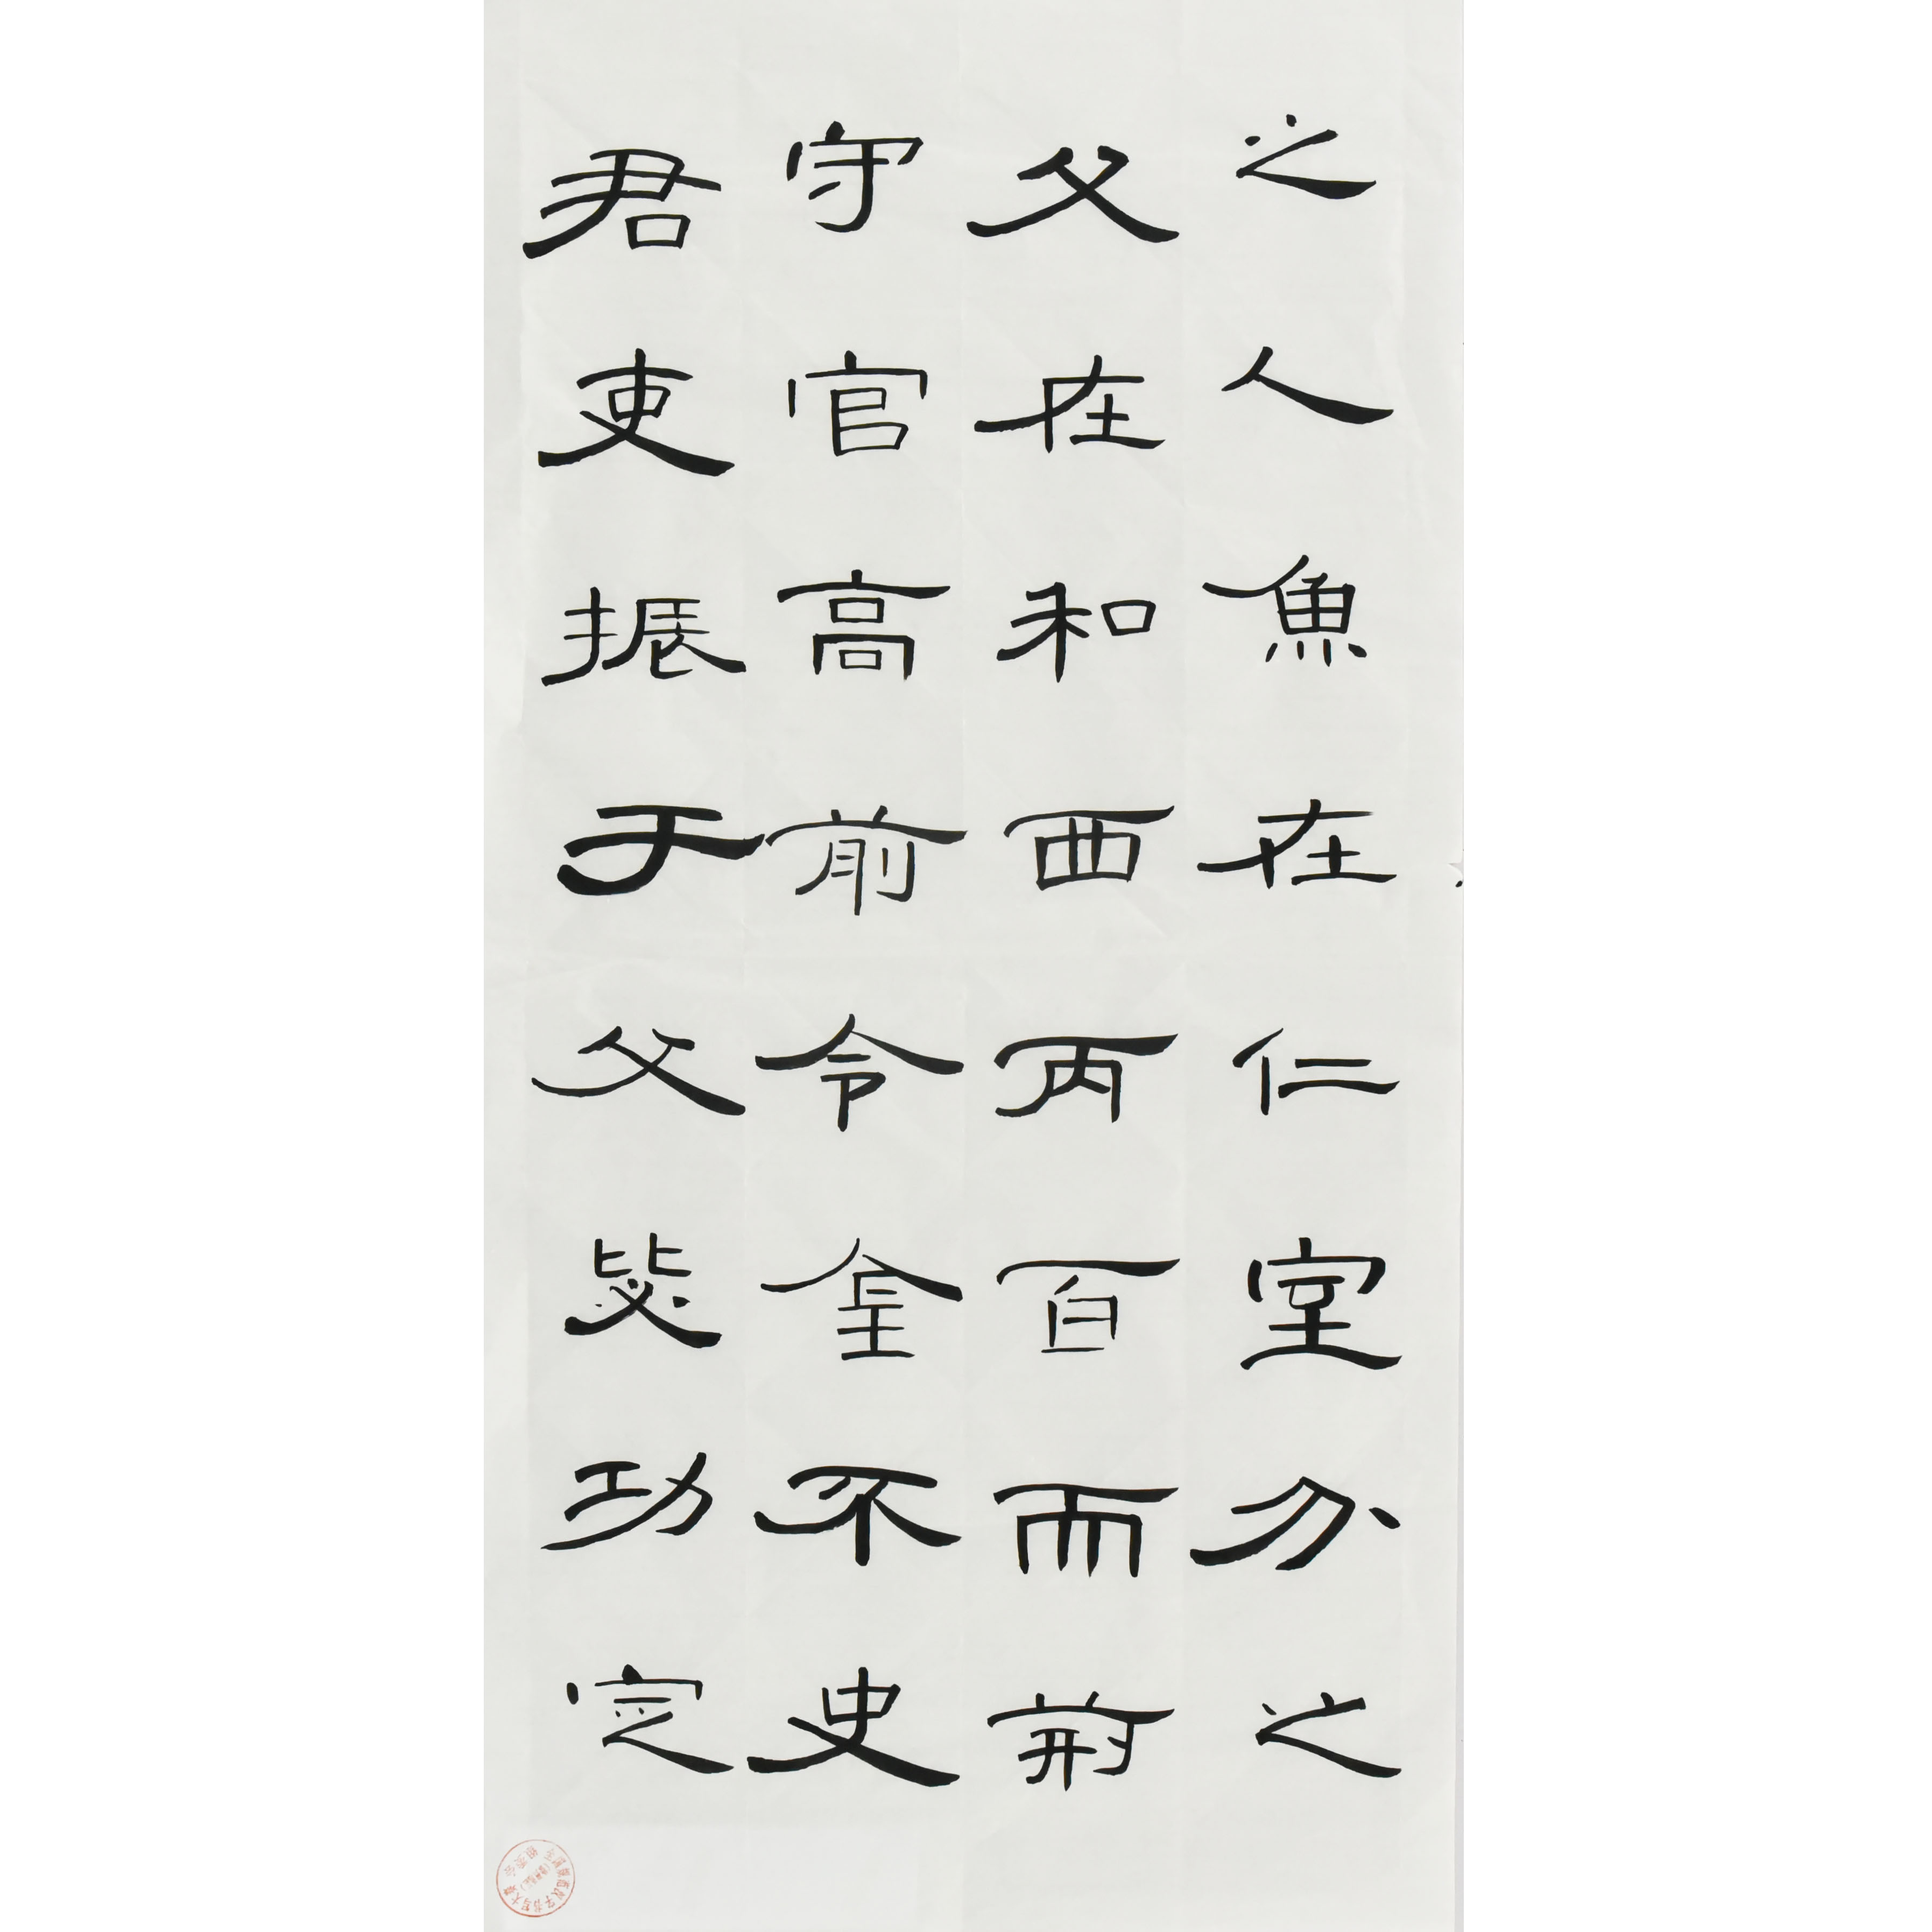 之人魚在仁室勿之
父在和西丙百而荊
守官高前令不史
君吏振于父功定